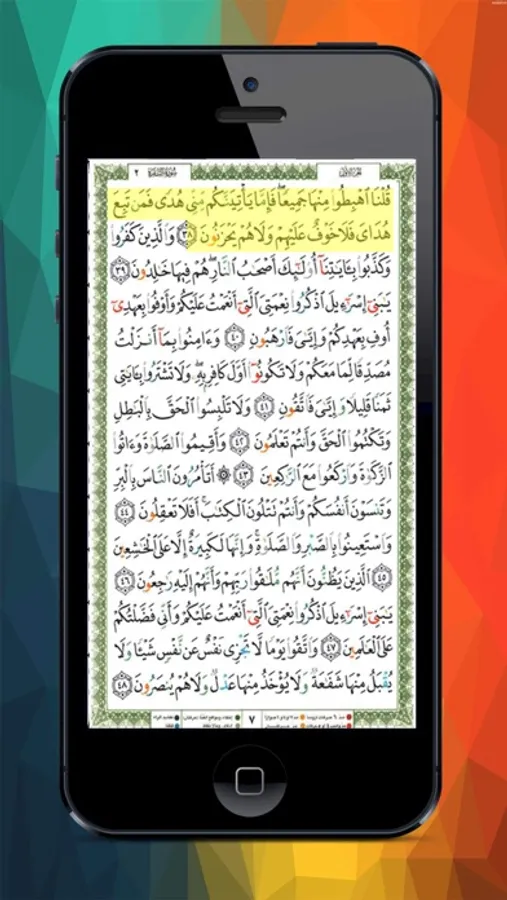 سورة البقرة ٢
الجزء الأول
قُلْنَا اهْبِطُوا مِنْهَا جَمِيعًا ۖ فَإِمَّا يَأْتِيَنَّكُم مِّنِّي هُدًى فَمَن تَبِعَ
هُدَايَ فَلَا خَوْفٌ عَلَيْهِمْ وَلَا هُمْ يَحْزَنُونَ ٣٨ وَالَّذِينَ كَفَرُوا
وَكَذَّبُوا بِـَٔايَـٰتِنَآ أُولَـٰٓئِكَ أَصْحَـٰبُ النَّارِ ۖ هُمْ فِيهَا خَـٰلِدُونَ ٣٩
يَـٰبَنِىٓ إِسْرَٰٓءِيلَ اذْكُرُوا نِعْمَتِىَ الَّتِىٓ أَنْعَمْتُ عَلَيْكُمْ وَأَوْفُوا بِعَهْدِىٓ
أُوفِ بِعَهْدِكُمْ وَإِيَّـٰىَ فَارْهَبُونِ ٤٠ وَءَامِنُوا بِمَآ أَنزَلْتُ
مُصَدِّقًا لِّمَا مَعَكُمْ وَلَا تَكُونُوٓا أَوَّلَ كَافِرٍۭ بِهِۦ ۖ وَلَا تَشْتَرُوا بِـَٔايَـٰتِى
ثَمَنًا قَلِيلًا وَإِيَّـٰىَ فَاتَّقُونِ ٤١ وَلَا تَلْبِسُوا الْحَقَّ بِالْبَـٰطِلِ
وَتَكْتُمُوا الْحَقَّ وَأَنتُمْ تَعْلَمُونَ ٤٢ وَأَقِيمُوا الصَّلَوٰةَ وَءَاتُوا
الزَّكَوٰةَ وَارْكَعُوا مَعَ الرَّٰكِعِينَ ٤٣ ۞ أَتَأْمُرُونَ النَّاسَ بِالْبِرِّ
وَتَنسَوْنَ أَنفُسَكُمْ وَأَنتُمْ تَتْلُونَ الْكِتَـٰبَ ۚ أَفَلَا تَعْقِلُونَ ٤٤
وَاسْتَعِينُوا بِالصَّبْرِ وَالصَّلَوٰةِ ۚ وَإِنَّهَا لَكَبِيرَةٌ إِلَّا عَلَى الْخَـٰشِعِينَ
٤٥ الَّذِينَ يَظُنُّونَ أَنَّهُم مُّلَـٰقُوا رَبِّهِمْ وَأَنَّهُمْ إِلَيْهِ رَٰجِعُونَ ٤٦
يَـٰبَنِىٓ إِسْرَٰٓءِيلَ اذْكُرُوا نِعْمَتِىَ الَّتِىٓ أَنْعَمْتُ عَلَيْكُمْ وَأَنِّى فَضَّلْتُكُمْ
عَلَى الْعَـٰلَمِينَ ٤٧ وَاتَّقُوا يَوْمًا لَّا تَجْزِى نَفْسٌ عَن نَّفْسٍ شَيْـًٔا وَلَا
يُقْبَلُ مِنْهَا شَفَـٰعَةٌ وَلَا يُؤْخَذُ مِنْهَا عَدْلٌ وَلَا هُمْ يُنصَرُونَ ٤٨
٧